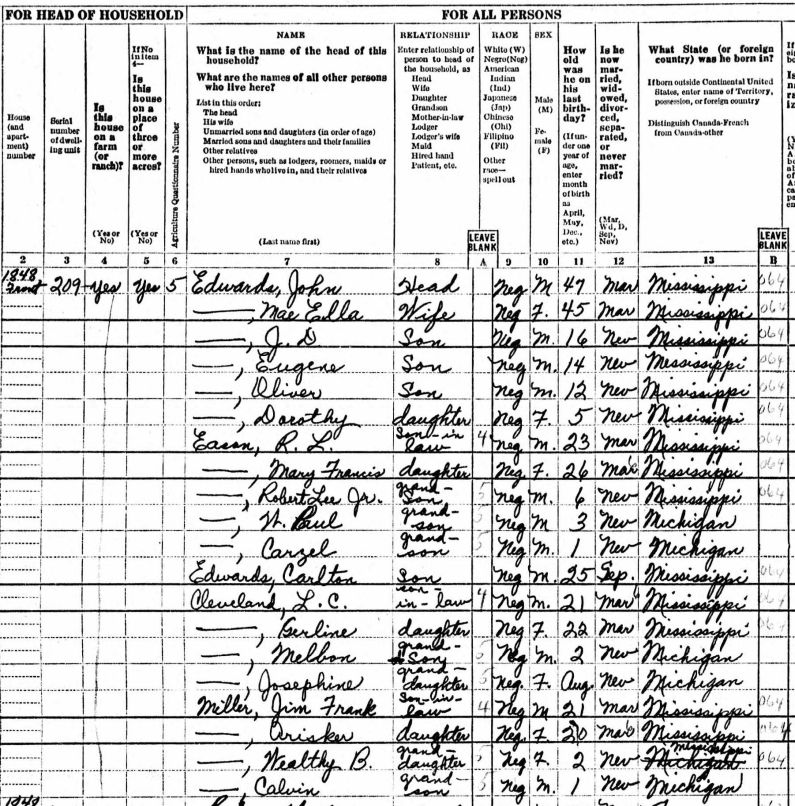 FOR HEAD OF HOUSEHOLD
FOR ALL PERSONS
House (and apartment) number
Serial number of dwelling unit
Is this house on a farm (or ranch)?
(Yes or No)
If No in item 4—
Is this house on a place of three or more acres?
(Yes or No)
Agriculture Questionnaire Number
NAME
What is the name of the head of this household?
What are the names of all other persons who live here?
List in this order:
The head
His wife
Unmarried sons and daughters (in order of age)
Married sons and daughters and their families
Other relatives
Other persons, such as lodgers, roomers, maids or hired hands who live in, and their relatives
(Last name first)
RELATIONSHIP
Enter relationship of person to head of the household, as
Head
Wife
Daughter
Grandson
Mother-in-law
Lodger
Lodger's wife
Maid
Hired hand
Patient, etc.
LEAVE BLANK
RACE
White (W)
Negro (Neg)
American Indian (Ind)
Japanese (Jap)
Chinese (Chi)
Filipino (Fil)
Other race—spell out
SEX
Male (M)
Female (F)
How old was he on his last birthday?
(If under one year of age, enter month of birth as April, May, Dec., etc.)
Is he now married, widowed, divorced, separated, or never married?
(Mar, Wd, D, Sep, Nev)
What State (or foreign country) was he born in?
If born outside Continental United States, enter name of Territory, possession, or foreign country
Distinguish Canada-French from Canada-other
LEAVE BLANK
2 3 4 5 6 7 8 A 9 10 11 12 13 B
1848 Front 209 Yes Yes 5 Edwards, John Head Neg M 47 Mar Mississippi 064
——, Mae Ella Wife Neg F. 45 Mar Mississippi 064
——, J. D Son Neg M. 16 Nev Mississippi 064
——, Eugene Son Neg M. 14 Nev Mississippi 064
——, Oliver Son Neg M. 12 Nev Mississippi 064
——, Dorothy daughter Neg F. 5 Nev Mississippi 064
Eason, R. L. Son-in law 4 Neg M. 23 Mar Mississippi 064
——, Mary Francis daughter Neg. F. 26 Mar Mississippi 064
——, Robert Lee Jr. grand-Son 5 Neg M. 6 Nev Mississippi 064
——, W. Paul grand-son 5 Neg M 3 Nev Michigan
——, Carzel grand-son 5 Neg M. 1 Nev Michigan
Edwards, Carlton Son Neg M. 25 Sep. Mississippi 064
Cleveland, L. C. son-in-law 4 Neg M. 21 Mar Mississippi 064
——, Berline daughter Neg F. 22 Mar Mississippi 064
——, Melbon grand-Son 5 Neg M. 2 Nev Michigan
——, Josephine grand-daughter 5 Neg. F. Aug Nev Michigan
Miller, Jim Frank Son-in-law 4 Neg M 21 Mar Mississippi 064
——, Arisker daughter Neg. F. 20 Mar Mississippi 064
——, Wealthy B. grand-daughter 5 Neg F. 2 Nev Michigan Mississippi 064
——, Calvin grand-son 5 Neg M. 1 Nev Michigan